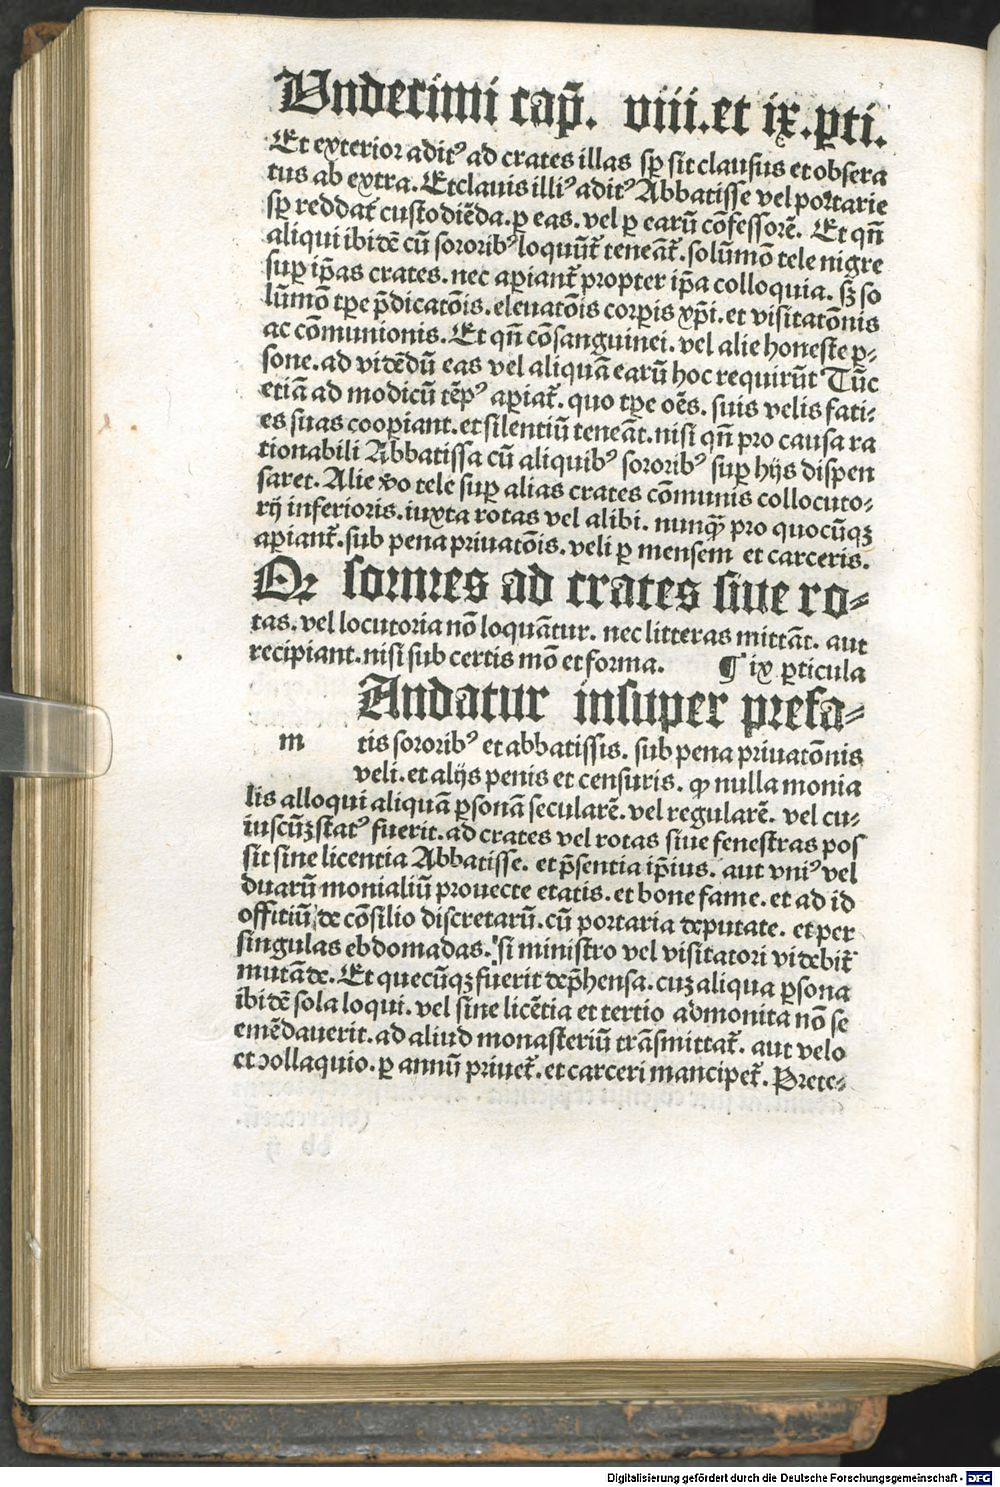 Undecimi cap̄. viii. et ix. ꝑti.
Et exterior aditꝰ ad crates illas sꝑ sit clausus et obsera
tus ab extra. Et clauis illiꝰ aditꝰ Abbatisse vel portarie
sꝑ reddat᷑ custodiēda. ꝑ eas. vel ꝑ earū cōfessorē. Et qn̄
aliqui ibidē cū sororibꝰ loquūt᷑ teneāt᷑. solūmō tele nigre
suꝑ ip̄as crates. nec aꝑiant᷑ propter ip̄a colloquia. sꝫ so
lūmō tꝑe p̄dicatōis. eleuatōis corꝑis xp̄i. et visitatōnis
ac cōmunionis. Et qn̄ cōsanguinei. vel alie honeste ꝑ-
sone. ad vidēdū eas vel aliquā earū hoc requirūt Tūc
etiā ad modicū tēpꝰ aꝑiat᷑. quo tꝑe oēs. suis velis faci-
es suas cooꝑiant. et silentiū teneāt. nisi qn̄ pro causa ra
tionabili Abbatissa cū aliquibꝰ sororibꝰ suꝑ hijs dispen
saret. Alie v̆o tele suꝑ alias crates cōmunis collocuto-
rij inferioris. iuxta rotas vel alibi. nunqꝫ̄ pro quocūqꝫ
aꝑiant᷑. sub pena priuatōis. veli ꝑ mensem et carceris.
Qꝛ sorores ad crates siue ro-
tas. vel locutoria nō loquātur. nec litteras mittāt. aut
recipiant. nisi sub certis mō et forma. ¶ ix ꝑticula
Andatur insuper prefa-
m tis sororibꝰ et abbatissis. sub pena priuatōnis
veli. et alijs penis et censuris. ꝙ nulla monia
lis alloqui aliquā ꝑsonā secularē. vel regularē. vel cu-
iuscūqꝫ statꝰ fuerit. ad crates vel rotas siue fenestras pos
sit sine licentia Abbatisse. et p̄sentia ip̄ius. aut vniꝰ vel
duarū monialiū prouecte etatis. et bone fame. et ad id
offitiū de cōsilio discretarū. cū portaria deputate. et per
singulas ebdomadas. si ministro vel visitatori videbit᷑
mutāde. Et quecūqꝫ fuerit dep̄hensa. cuꝫ aliqua ꝑsona
ibidē sola loqui. vel sine licētia et tertio admonita nō se
emēdauerit. ad aliud monasteriū trāsmittat᷑. aut velo
et ꝯollaquio. ꝑ annū priuet᷑. et carceri mancipet᷑. Prete-
Digitalisierung gefördert durch die Deutsche Forschungsgemeinschaft - DFG